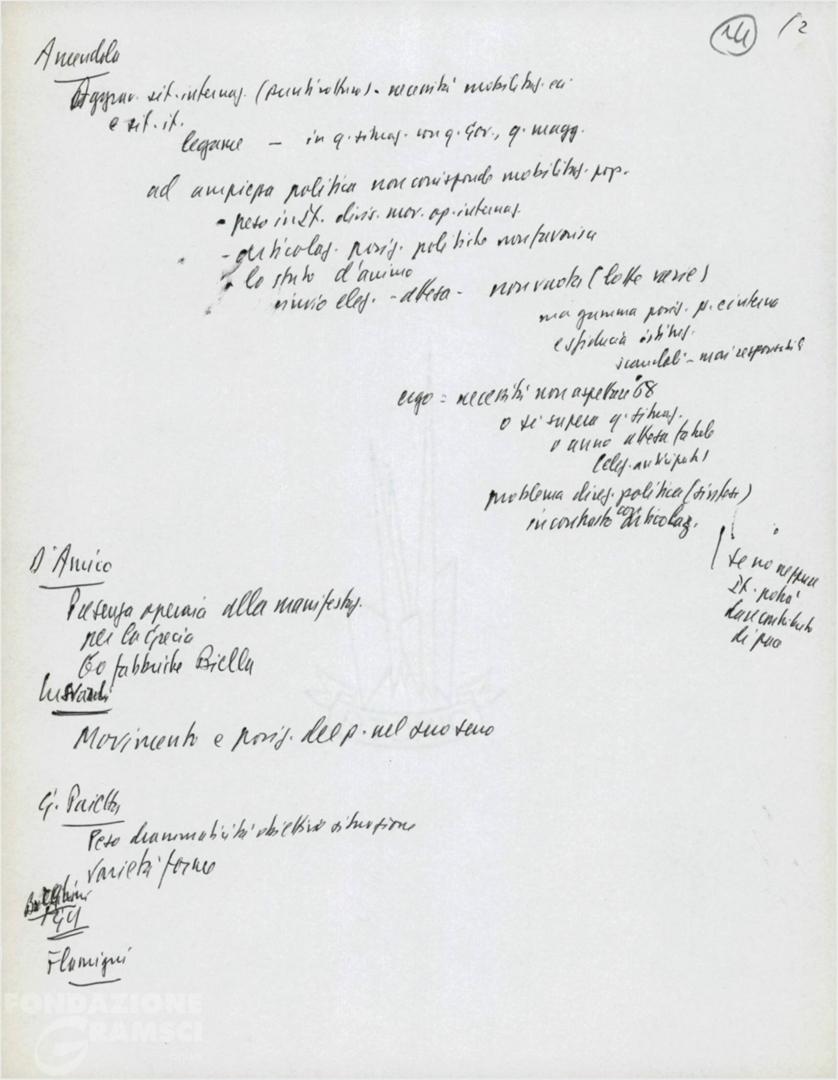 24 /2
Amendola
Aggrav. sit. internaz. (punti rottura) - necessità mobilitaz. ecc
e sit. it.
legame - in q. situaz. con q. Gov., q. magg.
ad ampiezza politica non corrisponde mobilitaz. pop.
- peso in It. divis. mov. op. internaz.
- articolaz. posiz. politiche non favorisce
- lo stato d'animo
rinvio elez. - attesa - non vuota (lotte varie)
ma gamma posiz. p. e interno
e sfiducia istituz.
scandali - mai responsabili
ergo = necessità non aspettare '68
o si supera q. situaz.
o anno attesa fatale
(elez. anticipate)
problema direz. politica (sintesi)
in contrasto con articolaz.
se no neppure
It. potrà
dare contributo
di pace
D'Amico
Presenza operaia alla manifestaz.
per la Grecia
60 fabbriche Biella
Movimento e posiz. del p. nel suo seno
G. Pajetta
Peso drammaticità obiettiva situazione
varietà forme
FGCI
Flamigni
FONDAZIONE
GRAMSCI